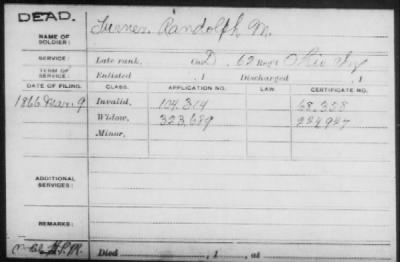 DEAD.
NAME OF SOLDIER: Turner, Randolph M.
SERVICE: Late rank, Co. D, 62 Reg't Ohio Inf
TERM OF SERVICE: Enlisted , 1 Discharged , 1
DATE OF FILING. CLASS. APPLICATION NO. LAW. CERTIFICATE NO.
1866 Mar. 9 Invalid, 104,314 68,358
Widow, 323,689
Minor,
ADDITIONAL SERVICES:
REMARKS:
Died , 1 , at